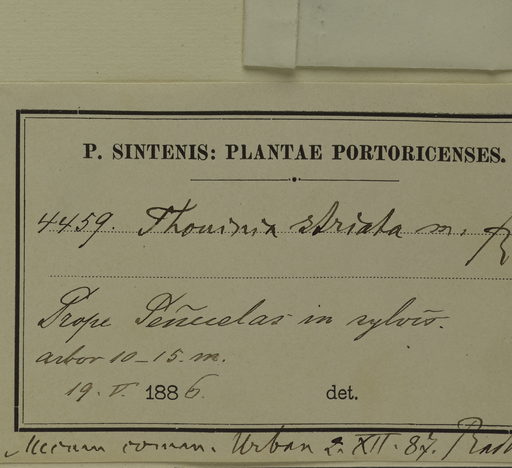 P. SINTENIS: PLANTAE PORTORICENSES.
4459. Thouinia striata m.
Prope Peñuelas in sylvis.
arbor 10-15. m.
19. V. 1886. det.
Mecum comm. Urban 2. XII. 87.